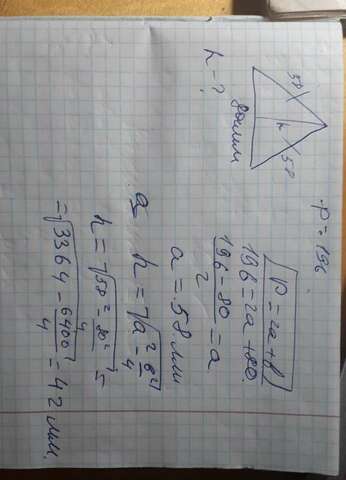 P = 196
58
h
58
80мм
h - ?
P = 2a + b
196 = 2a + 80
196 - 80 / 2 = a
a = 58 мм
a h = √a² - b²/4
h = √58² - 80²/4 =
= √3364 - 6400/4 = 42 мм.